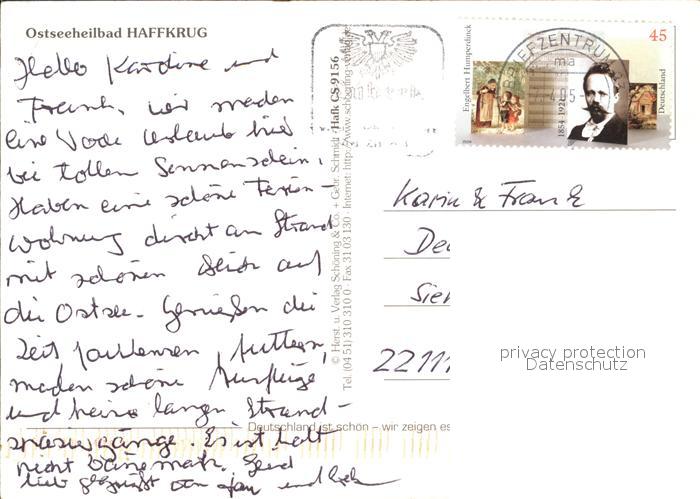 Ostseeheilbad HAFFKRUG
Hallo Karoline und
Frank, wir machen
eine Woche Urlaub hier
bei tollem Sonnenschein.
Haben eine schöne Ferien-
wohnung direkt am Strand
mit schönem Blick auf
die Ostsee. Genießen die
Zeit faulenzen, futtern,
machen schöne Ausflüge
und keine langen Strand-
spaziergänge. Es ist halt
nicht Dänemark. Seid
lieb gegrüßt von und
© Herst. u. Verlag Schöning & Co. + Gebr. Schmidt · Halk CS 9156
Tel. (04 51) 310 310 0 · Fax 31 03 130 · Internet: http://www.schoening-verlag.de
Engelbert Humperdinck
1854-1921
45
Deutschland
BRIEFZENTRUM
ma
Karin & Frank
De
Sie
22111
privacy protection
Datenschutz
Deutschland ist schön – wir zeigen es